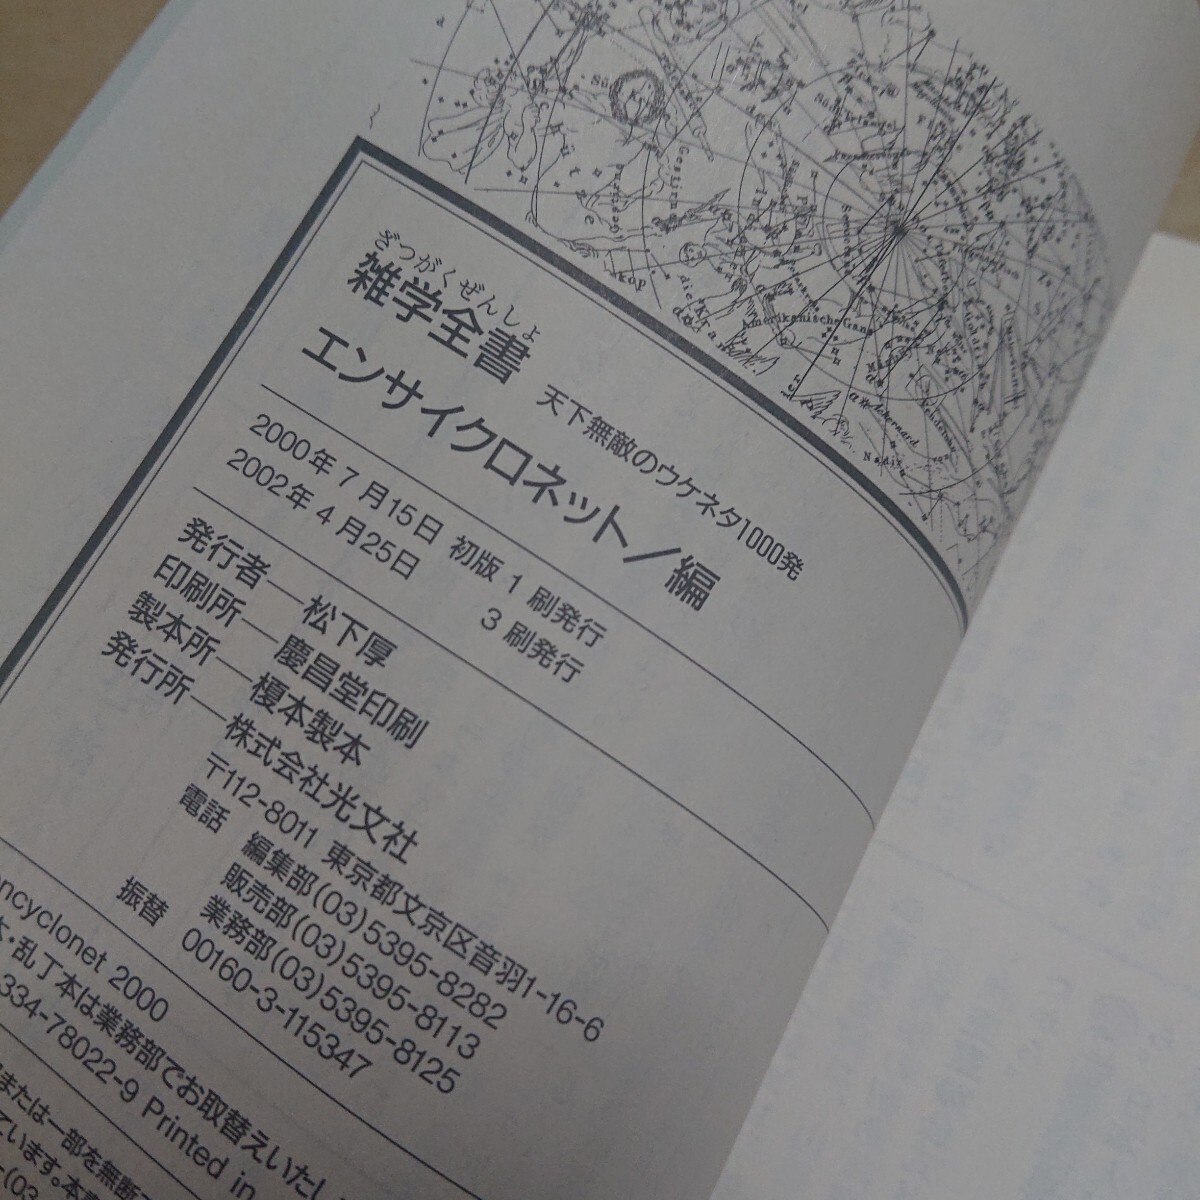 ざつがくぜんしょ
雑学全書 天下無敵のウケネタ1000発
エンサイクロネット/編
2000年7月15日 初版1刷発行
2002年4月25日 3刷発行
発行者―松下厚
印刷所―慶昌堂印刷
製本所―榎本製本
発行所―株式会社光文社
〒112-8011 東京都文京区音羽1-16-6
電話 編集部(03)5395-8282
販売部(03)5395-8113
業務部(03)5395-8125
振替 00160-3-115347
ncyclonet 2000
本・乱丁本は業務部でお取替えいたし
334-78022-9 Printed in
または一部を無断
ています。本書
(03
Amerikanische Gans
Gestirne
Nadir